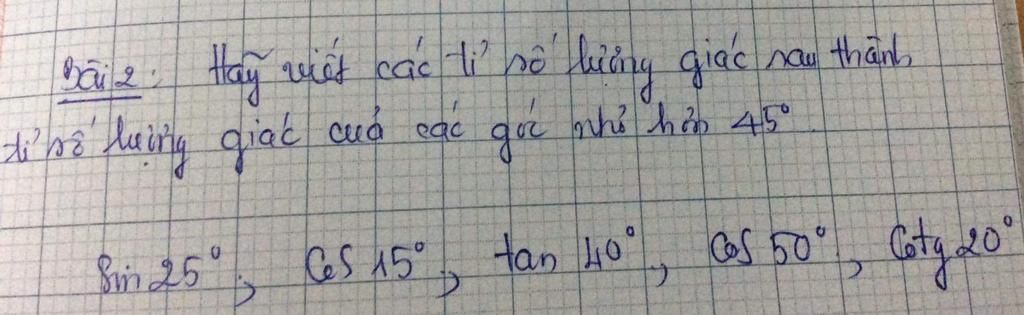 Bài 2: Hãy viết các tỉ số lượng giác sau thành
tỉ số lượng giác của các góc nhỏ hơn 45°
Sin 25°; Cos 15°, tan 40°, Cos 50°, Cotg 20°